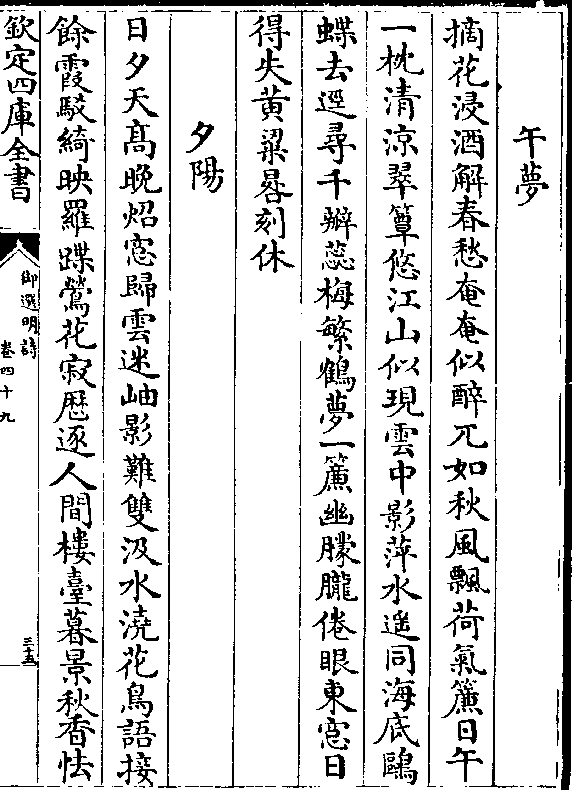 午夢
摘花浸酒解春愁奄奄似醉兀如秋風飄荷氣簾日午
一枕清涼翠簟悠江山似現雲中影萍水遙同海底鷗
蝶去逕尋千瓣蕊梅繁鶴夢一簾幽朦朧倦眼東窓日
得失黄粱晷刻休
夕陽
日夕天髙晚炤窓歸雲迷岫影難雙汲水澆花鳥語接
餘霞駁綺映羅蹀鶯花寂厯逐人間樓臺暮景秋香怯
欽定四庫全書
御選明詩
卷四十九
三十五